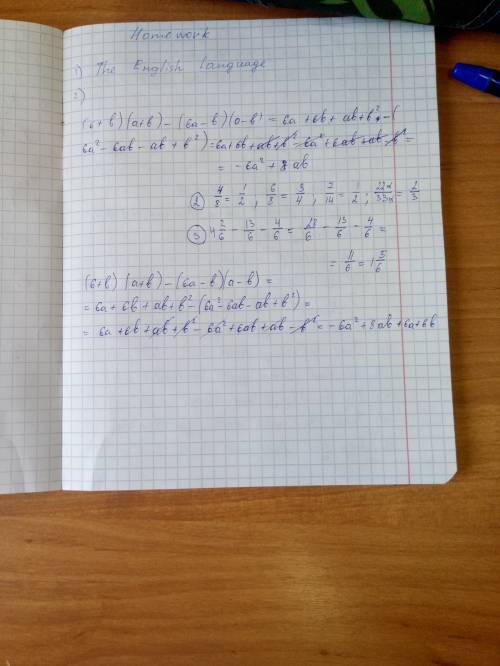 Homework
1) The English language
2)
(6+b)(a+b)-(6a-b)(a-b) = 6a+6b+ab+b²-(
6a²-6ab-ab+b²)=6a+6b+ab+b²-6a²+6ab+ab-b²=
= -6a²+8ab
② 4/8=1/2; 6/8=3/4; 7/14=1/2; 22x/33x=2/3
③ 4 2/6 - 13/6 - 4/6 = 28/6 - 13/6 - 4/6 =
= 11/6 = 1 5/6
(6+b)(a+b)-(6a-b)(a-b)=
= 6a+6b+ab+b²-(6a²-6ab-ab+b²)=
= 6a+6b+ab+b²-6a²+6ab+ab-b²=-6a²+8ab+6a+6b